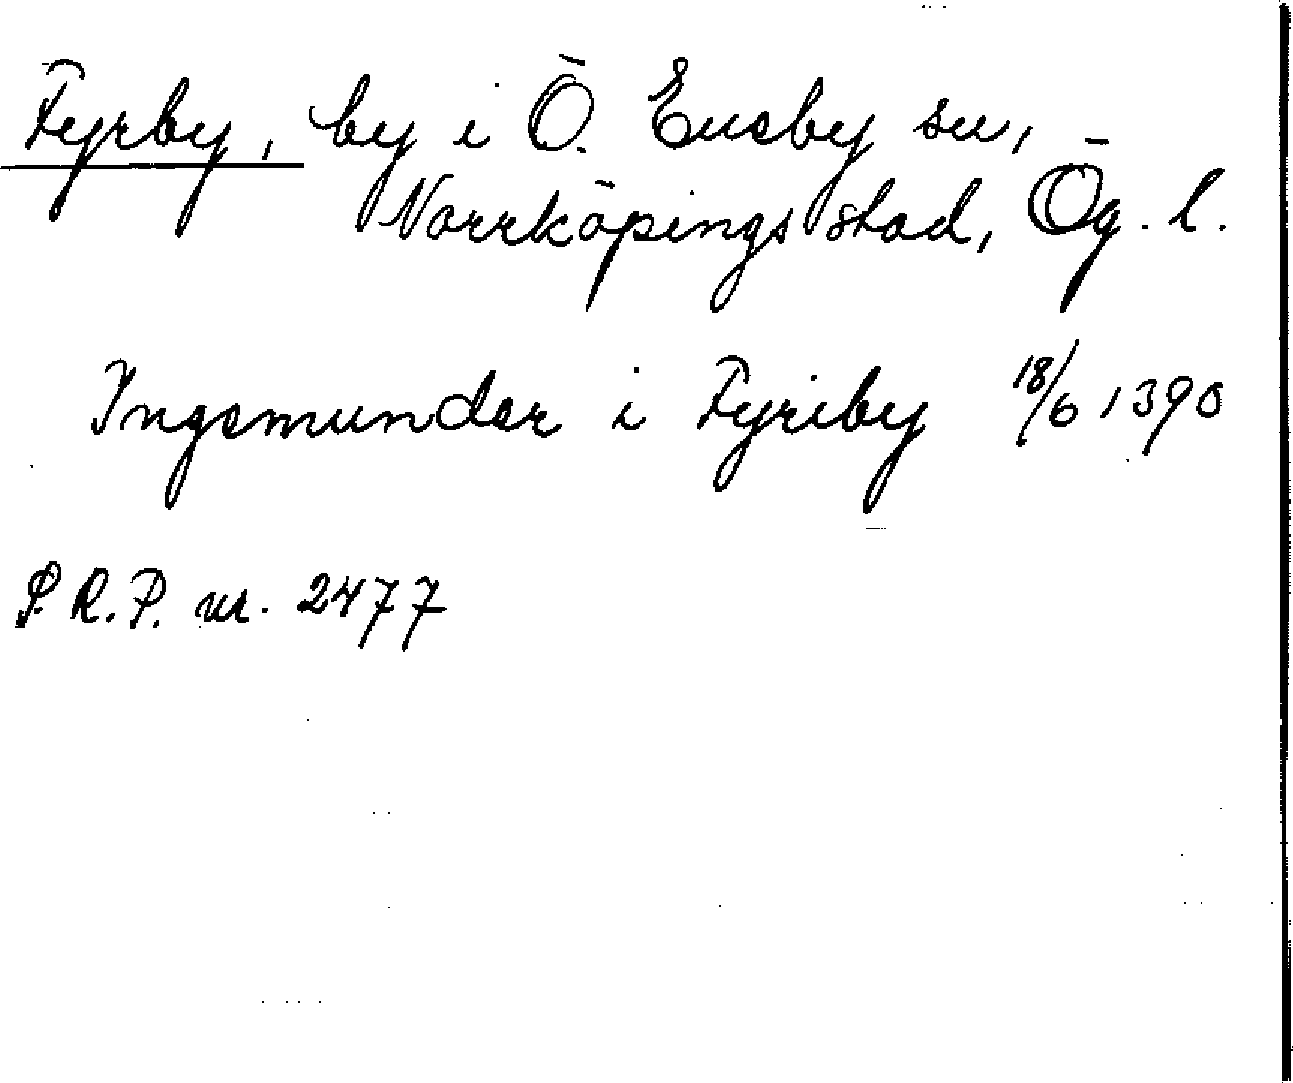 Fyrby, by i Ö. Eneby sn,
Norrköpings stad, Ög. l.
Ingemunder i Fyriby 18/6 1390
P.R.P. nr. 2477